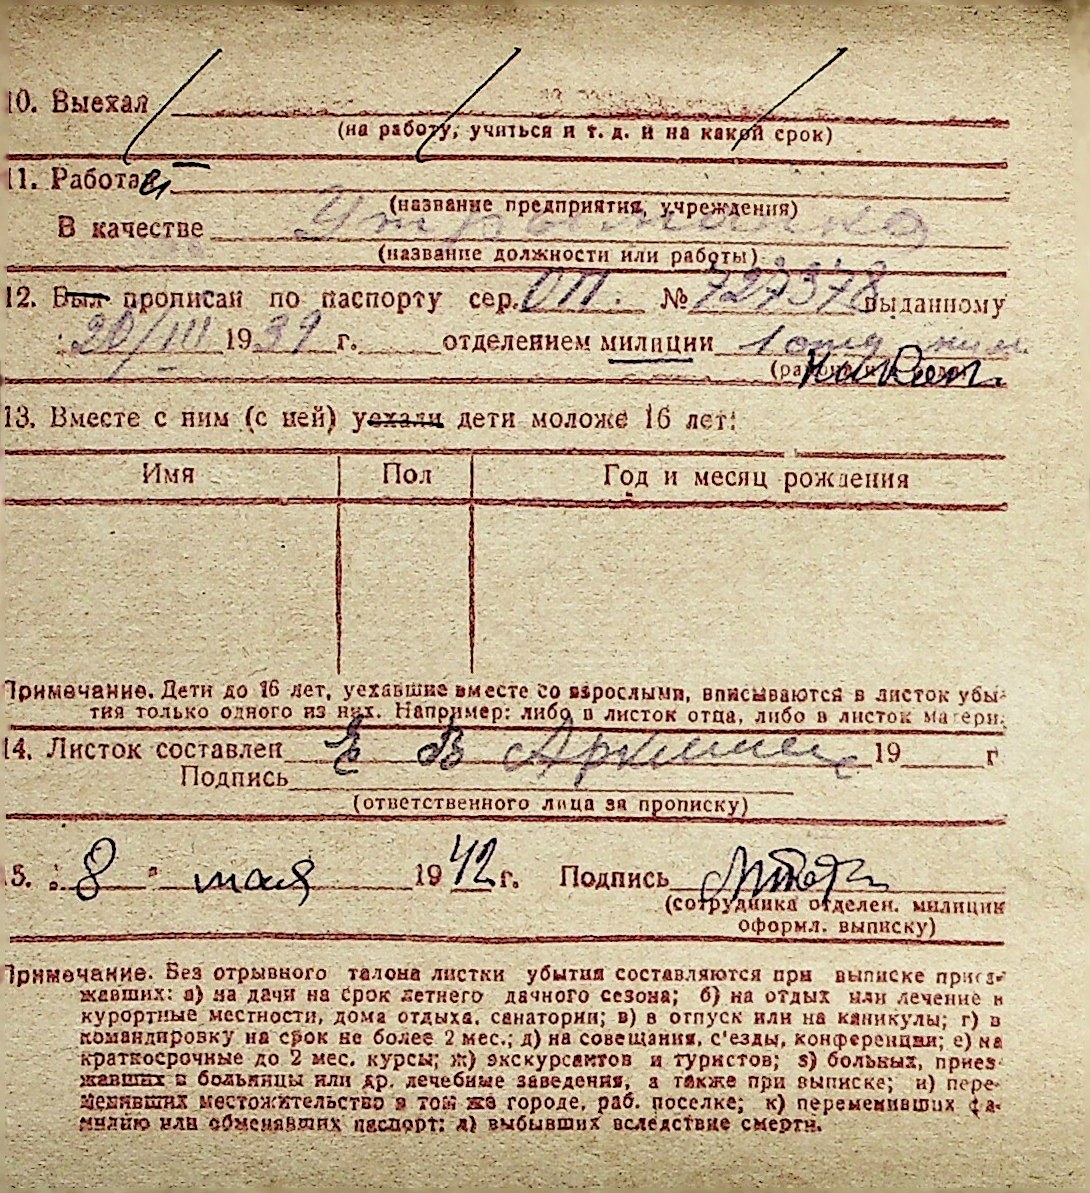 10. Выехал
(на работу, учиться и т. д. и на какой срок)
11. Работа
(название предприятия, учреждения)
В качестве
(название должности или работы)
12. Был прописан по паспорту сер. ОП. № 727378 выданному
20/III 1939 г. отделением милиции 1 отд
13. Вместе с ним (с ней) уехали дети моложе 16 лет:
Имя Пол Год и месяц рождения
Примечание. Дети до 16 лет, уехавшие вместе со взрослыми, вписываются в листок убы-
тия только одного из них. Например: либо в листок отца, либо в листок матери.
14. Листок составлен Е В 19 г
Подпись
(ответственного лица за прописку)
15. „8 " мая 1942 г. Подпись
(сотрудника отделен. милиции
оформл. выписку)
Примечание. Без отрывного талона листки убытия составляются при выписке приез-
жавших: а) на дачи на срок летнего дачного сезона; б) на отдых или лечение в
курортные местности, дома отдыха, санатории; в) в отпуск или на каникулы; г) в
командировку на срок не более 2 мес.; д) на совещания, с'езды, конференции; е) на
краткосрочные до 2 мес. курсы; ж) экскурсантов и туристов; з) больных, приез-
жавших в больницы или др. лечебные заведения, а также при выписке; и) пере-
менивших местожительство в том же городе, раб. поселке; к) переменивших фа-
милию или обменявших паспорт; л) выбывших вследствие смерти.